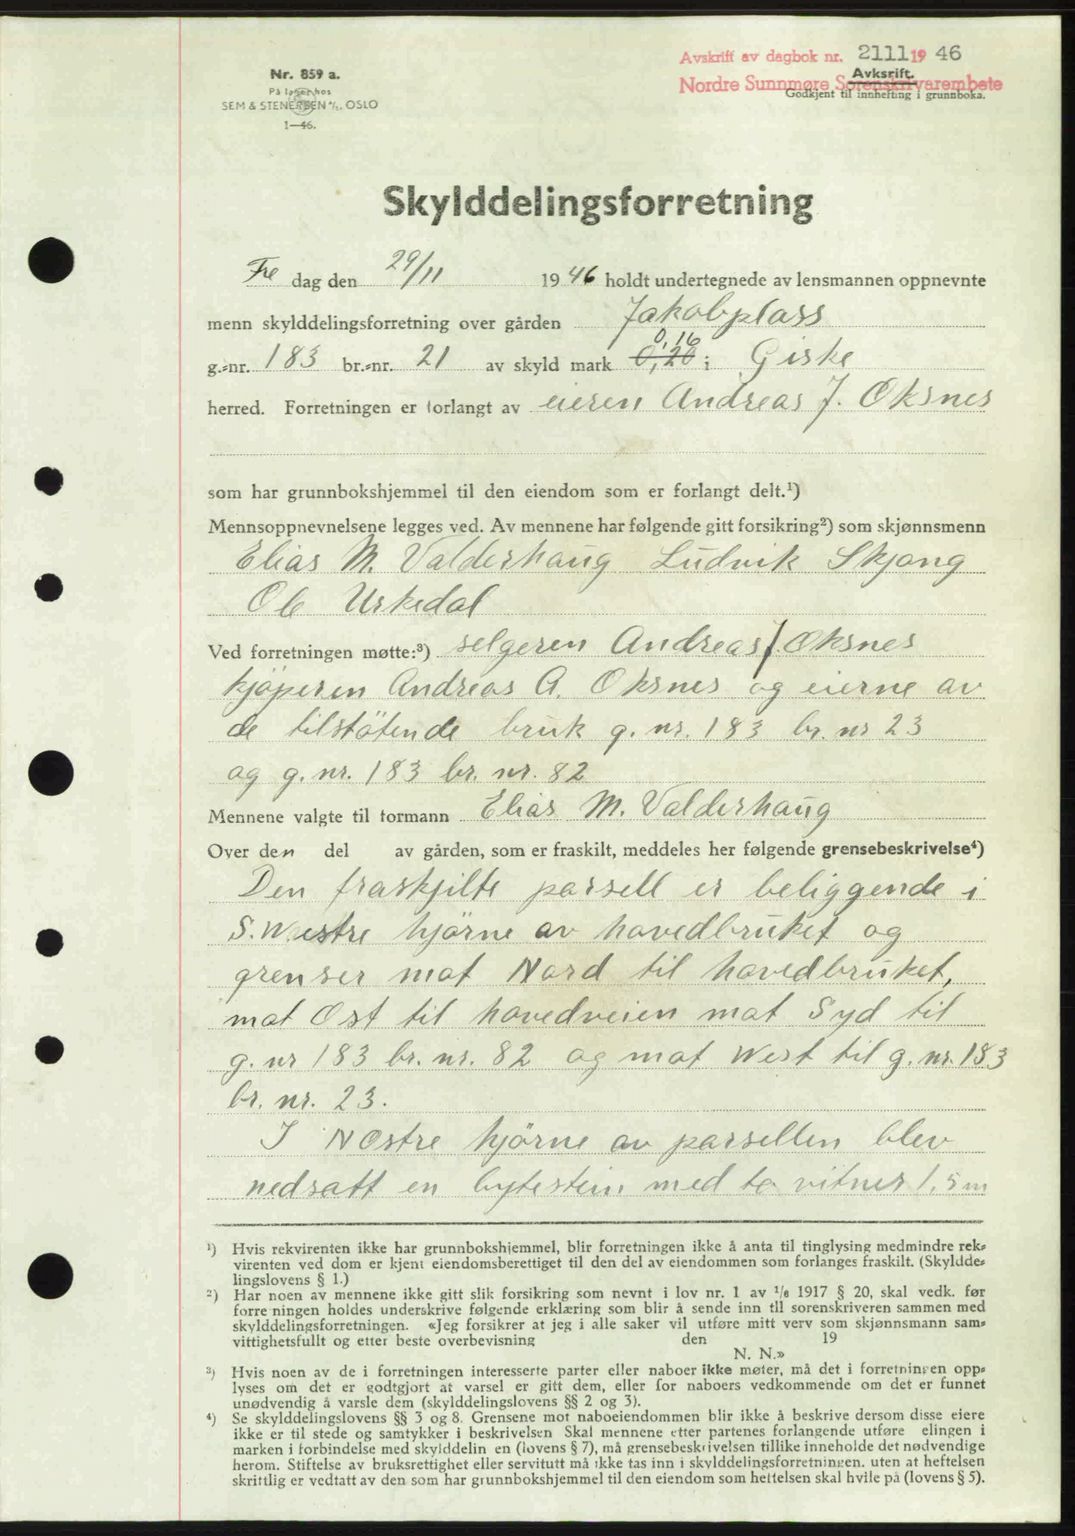 Avskrift av dagbok nr. 2111 19 46
Nordre Sunnmøre Sorenskrivarembete
Avksrift.
Godkjent til innhefting i grunnboka.
Nr. 859 a.
På lager hos
SEM & STENERSEN A/S. OSLO
1—46.
Skylddelingsforretning
Fre dag den 29/11 19 46 holdt undertegnede av lensmannen oppnevnte
menn skylddelingsforretning over gården Jakobplass
0,16
g.-nr. 183 br.-nr. 21 av skyld mark 0,20 i Giske
herred. Forretningen er forlangt av eieren Andreas J. Oksnes
som har grunnbokshjemmel til den eiendom som er forlangt delt.¹)
Mennsoppnevnelsene legges ved. Av mennene har følgende gitt forsikring²) som skjønnsmenn
Elias M. Valderhaug Ludvik Skjong
Ole Urkedal
Ved forretningen møtte:³) selgeren Andreas J. Oksnes
kjöperen Andreas A. Oksnes og eierne av
de tilstötende bruk g. nr. 183 br. nr 23
og g. nr. 183 br. nr. 82
Mennene valgte til formann Elias M. Valderhaug
Over den del av gården, som er fraskilt, meddeles her følgende grensebeskrivelse⁴)
Den fraskjilte parsell er beliggende i
S. Westre hjörne av hovedbruket og
grenser mot Nord til hovedbruket,
mot Ost til hovedveien mot Syd til
g. nr 183 br. nr. 82 og mot West til g. nr. 183
br. nr. 23.
I NOstre hjörne av parsellen blev
nedsatt en bytestein med to vitner 1,5 m
¹) Hvis rekvirenten ikke har grunnbokshjemmel, blir forretningen ikke å anta til tinglysing medmindre rek-
virenten ved dom er kjent eiendomsberettiget til den del av eiendommen som forlanges fraskilt. (Skyldde-
lingslovens § 1.)
²) Har noen av mennene ikke gitt slik forsikring som nevnt i lov nr. 1 av ¹/6 1917 § 20, skal vedk. før
forre ningen holdes underskrive følgende erklæring som blir å sende inn til sorenskriveren sammen med
skylddelingsforretningen. «Jeg forsikrer at jeg i alle saker vil utføre mitt verv som skjønnsmann sam-
vittighetsfullt og etter beste overbevisning den 19
N. N.»
³) Hvis noen av de i forretningen interesserte parter eller naboer ikke møter, må det i forretningen opp-
lyses om det er godtgjort at varsel er gitt dem, eller for naboers vedkommende om det er funnet
unødvendig å varsle dem (skylddelingslovens §§ 2 og 3).
⁴) Se skylddelingslovens §§ 3 og 8. Grensene mot naboeiendommen blir ikke å beskrive dersom disse eiere
ikke er til stede og samtykker i beskrivelsen Skal mennene etter partenes forlangende utføre elingen i
marken i forbindelse med skylddelin en (lovens § 7), må grensebeskrivelsen tillike inneholde det nødvendige
herom. Stiftelse av bruksrettighet eller servitutt må ikke tas inn i skylddelingsforretningen. uten at heftelsen
skriftlig er vedtatt av den som har grunnbokshjemmel til den eiendom som heftelsen skal hvile på (lovens § 5).